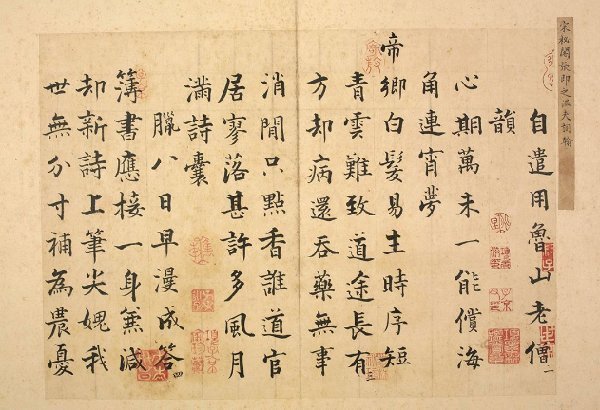 宋秘閣張即之溫夫詞翰
自遣用魯山老僧
一
韻
心期萬未一能償海
角連宵夢
帝鄉白髮易生時序短
三
青雲難致道途長有
方却病還吞藥無事
消閒只點香誰道官
居寥落甚許多風月
滿詩囊
臘八日早漫成答
四
簿書應接一身無減
却新詩上筆尖媿我
世無分寸補為農憂